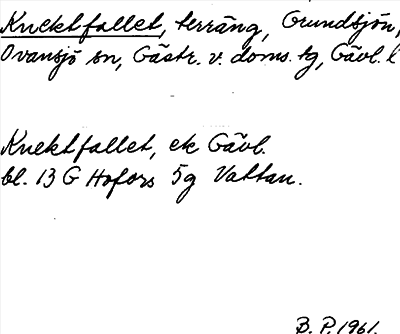 Knektfallet, terräng, Grundsjön,
Ovansjö sn, Gästr. v. doms. tg, Gävl. l
Knektfallet, ek Gävl.
bl. 13 G Hofors 5g Vattan.
B. P. 1961.